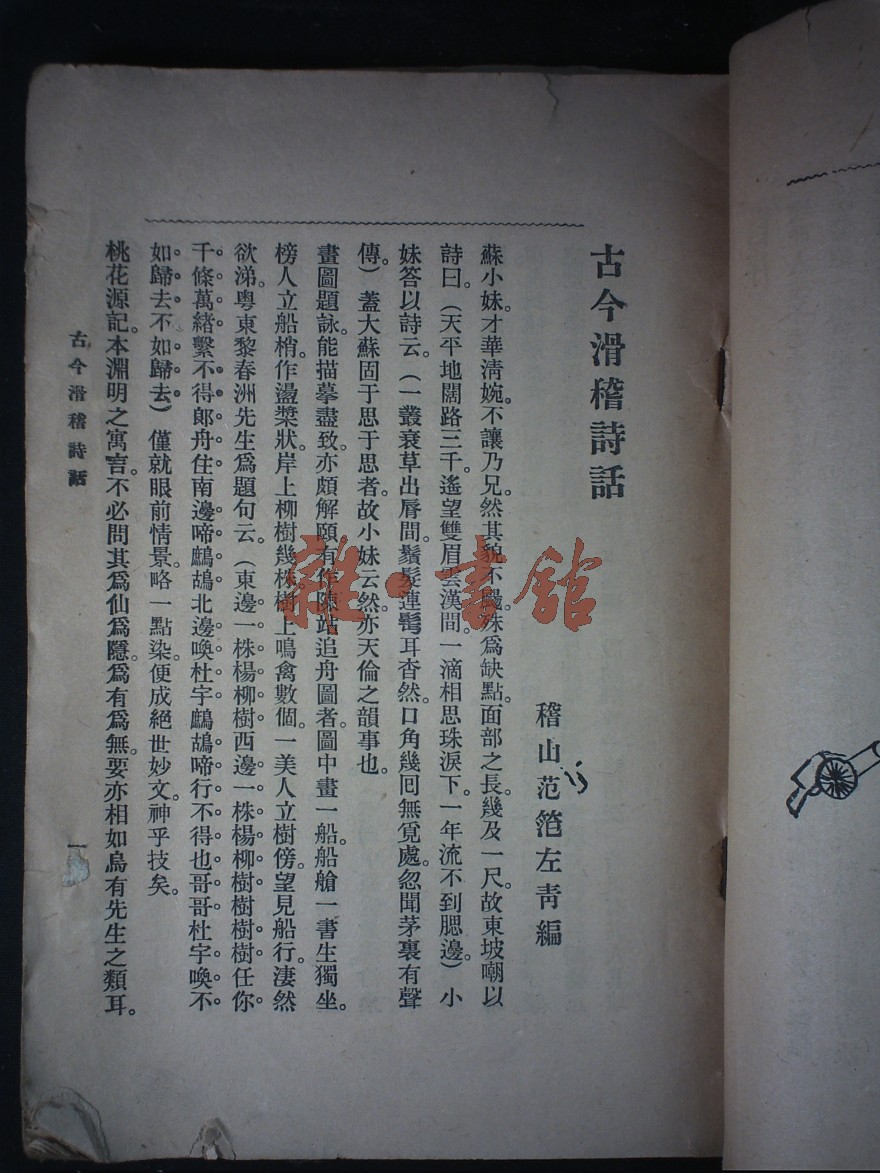 古今滑稽詩話
稽山范笵左青編
蘇小妹。才華清婉。不讓乃兄。然其貌不颺。殊爲缺點。面部之長。幾及一尺。故東坡嘲以
詩曰。(天平地闊路三千。遙望雙眉雲漢間。一滴相思珠淚下。一年流不到腮邊)小
妹答以詩云。(一叢衰草出唇間。鬚髮連鬢耳杳然。口角幾囘無覓處。忽聞茅裏有聲
傳)蓋大蘇固于思于思者。故小妹云然。亦天倫之韻事也。
畫圖題詠。能描摹盡致。亦頗解頤。有作陳站追舟圖者。圖中畫一船。船艙一書生獨坐。
榜人立船梢。作盪槳狀。岸上柳樹幾株。樹上鳴禽數個。一美人立樹傍。望見船行。淒然
欲涕。粵東黎春洲先生爲題句云。(東邊一株楊柳樹西邊一株楊柳樹樹樹樹任你
千條萬緒繫不得郎舟住南邊啼鷓鴣北邊喚杜宇鷓鴣啼行不得也哥哥杜宇喚不
如歸去不如歸去)僅就眼前情景。略一點染。便成絕世妙文。神乎技矣。
桃花源記。本淵明之寓言。不必問其爲仙爲隱。爲有爲無。要亦相如烏有先生之類耳。
古今滑稽詩話
一
雜·書館